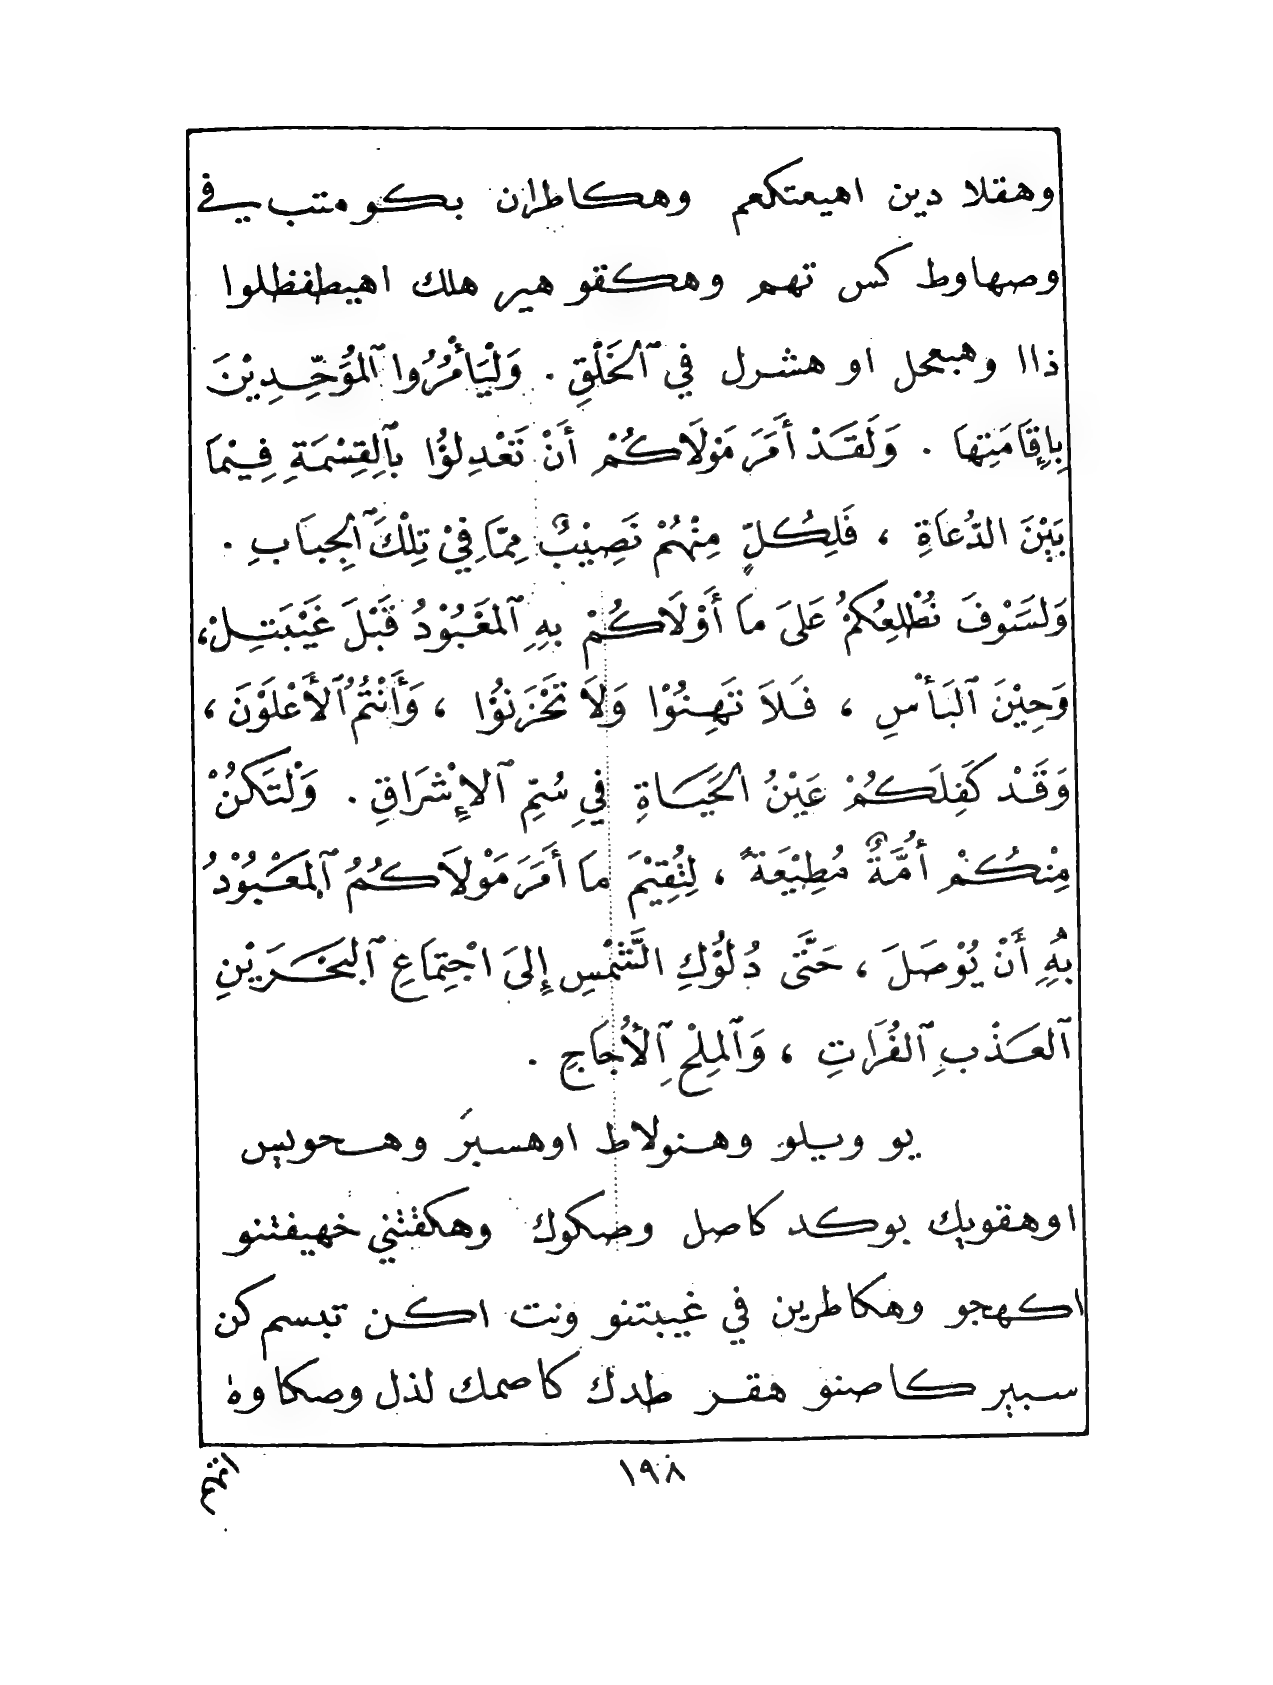 وهقلا دين اهيعتكعم وهكاطران بكو متب في
وصهاوط كس تهم وهكقو هير هلك اهيطفظلوا
ذاا وهبعحل او هشرل في ٱلخَلْقِ . وَلْيَأْمُرُوا ٱلمُوَحِّدِيْنَ
بِإِقَامَتِها . وَلَقَدْ أَمَرَ مَوْلَاكُمْ أَنْ تَعْدِلُوْا بِٱلقِسْمَةِ فِيْمَا
بَيْنَ الدُّعَاةِ ، فَلِكُلٍّ مِنْهُمْ نَصِيْبٌ مِمَّا فِيْ تِلْكَ ٱلجِبَابِ .
وَلَسَوْفَ نُطْلِعُكُمْ عَلَىَ ما أَوْلَاكُمْ بِهِ ٱلمَعْبُوْدُ قَبْلَ غَيْبَتِلْ،
وَحِيْنَ ٱلبَأْسِ ، فَلَا تَهِنُوْا وَلَا تَحْزَنُوْا ، وَأَنْتُمُ ٱلأَعْلَوْنَ ،
وَقَدْ كَفِلَكُمْ عَيْنُ الحَيَاةِ فِي سُتِّمِ ٱلإِشْرَاقِ . وَلْتَكُنْ
مِنْكُمْ أُمَّةٌ مُطِيْعَةٌ ، لِتُقِيْمَ ما أَمَرَ مَوْلَاكُمُ ٱلمَعْبُوْدُ
بِهِ أَنْ يُوْصَلَ ، حَتَّى دُلُوْكِ الشَّمْسِ إِلىَ اجْتِمَاعِ ٱلبَحْرَيْنِ
ٱلعَذْبِ ٱلفُرَاتِ ، وَٱلمِلْحِ ٱلأُجَاجِ .
يو ويلو وهنولاط اوهسبرَ وهحويس
اوهقويك بوكد كاصل وصكوك وهكفثني خهيفثنو
اكهجو وهكاطرين في غيبتنو ونت اكن تبسم كن
سبير كاصنو هقر طدك كاصمك لذل وصكا وهٰ
١٩٨